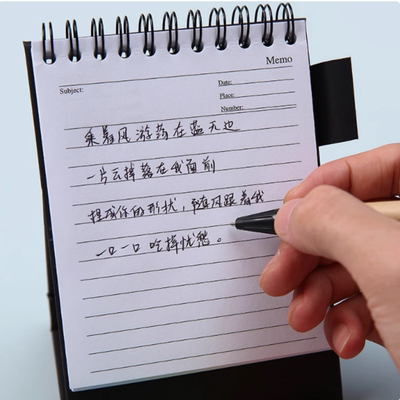 Memo
Subject:
Date:
Place:
Number:
乘着风游荡在蓝天边
一片云掉落在我面前
捏成你的形状,随风跟着我
一口一口吃掉忧愁。